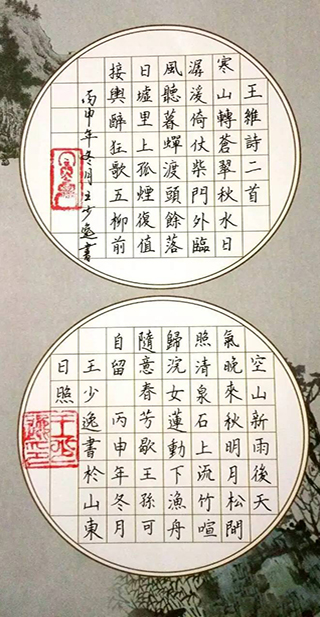 王維詩二首
寒山轉蒼翠秋水日
潺湲倚仗柴門外臨
風聽暮蟬渡頭餘落
日墟里上孤煙復值
接輿醉狂歌五柳前
丙申年冬月王少逸書
空山新雨後天
氣晚來秋明月松間
照清泉石上流竹喧
歸浣女蓮動下漁舟
隨意春芳歇王孫可
自留 丙申年冬月
王少逸書於山東
日照